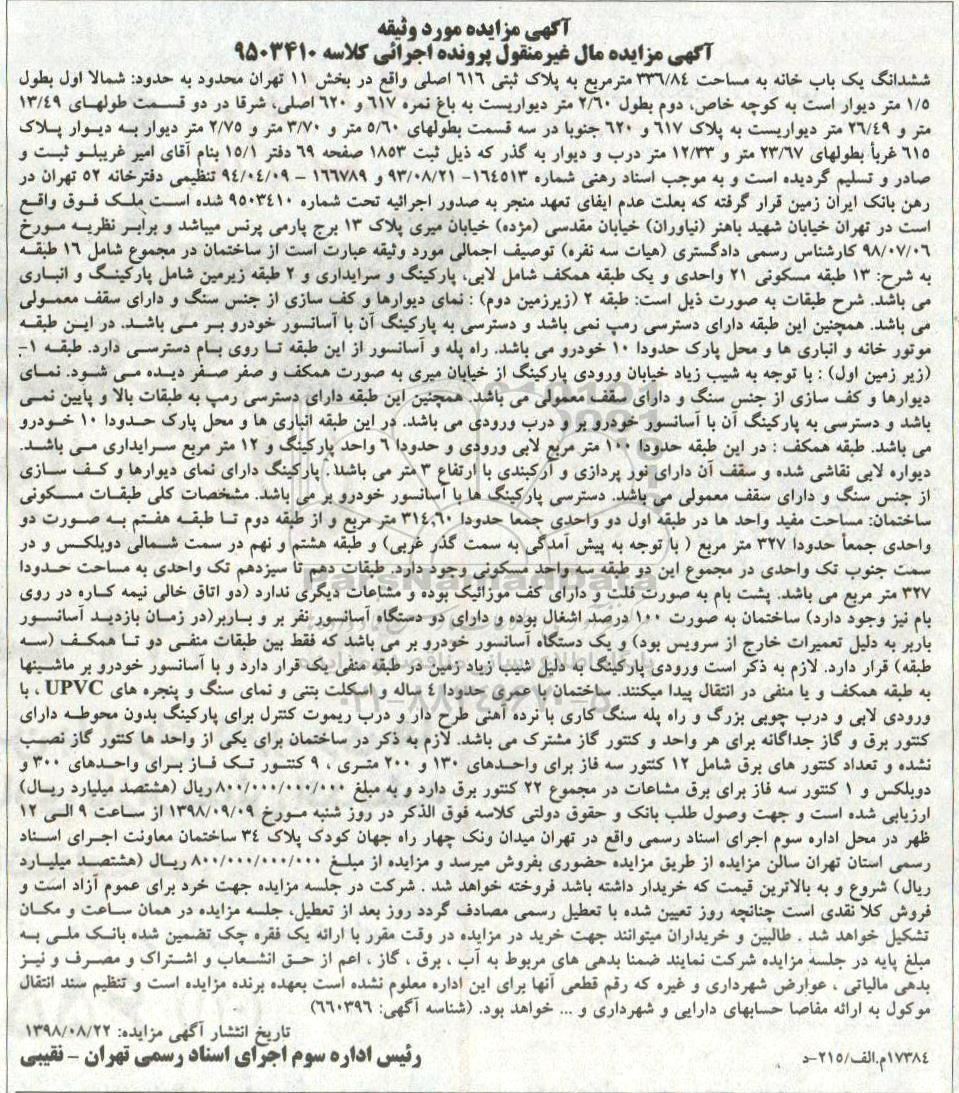 آگهی مزایده مورد وثیقه
آگهی مزایده مال غیرمنقول پرونده اجرائی کلاسه ۹۵۰۳۴۱۰
ششدانگ یک باب خانه به مساحت ۳۳۶/۸۴ مترمربع به پلاک ثبتی ۶۱۶ اصلی واقع در بخش ۱۱ تهران محدود به حدود: شمالا اول بطول
۱/۵ متر دیوار است به کوچه خاص، دوم بطول ۲/۶۰ متر دیواریست به باغ نمره ۶۱۷ و ۶۲۰ اصلی، شرقا در دو قسمت طولهای ۱۳/۴۹
متر و ۲۶/۴۹ متر دیواریست به پلاک ۶۱۷ و ۶۲۰ جنوبا در سه قسمت بطولهای ۵/۶۰ متر و ۳/۷۰ متر و ۲/۷۵ متر دیوار به دیوار پلاک
۶۱۵ غرباً بطولهای ۲۳/۶۷ متر و ۱۲/۳۳ متر درب و دیوار به گذر که ذیل ثبت ۱۸۵۳ صفحه ۶۹ دفتر ۱۵/۱ بنام آقای امیر غریبلو ثبت و
صادر و تسلیم گردیده است و به موجب اسناد رهنی شماره ۱۶۴۵۱۳- ۹۳/۰۸/۲۱ و ۱۶۶۷۸۹ - ۹۴/۰۴/۰۹ تنظیمی دفترخانه ۵۲ تهران در
رهن بانک ایران زمین قرار گرفته که بعلت عدم ایفای تعهد منجر به صدور اجرائیه تحت شماره ۹۵۰۳۴۱۰ شده است ملک فوق واقع
است در تهران خیابان شهید باهنر (نیاوران) خیابان مقدسی (مژده) خیابان میری پلاک ۱۳ برج پارمی پرنس میباشد و برابر نظریه مورخ
۹۸/۰۷/۰۶ کارشناس رسمی دادگستری (هیات سه نفره) توصیف اجمالی مورد وثیقه عبارت است از ساختمان در مجموع شامل ۱۶ طبقه
به شرح: ۱۳ طبقه مسکونی ۲۱ واحدی و یک طبقه همکف شامل لابی، پارکینگ و سرایداری و ۲ طبقه زیرمین شامل پارکینگ و انباری
می باشد. شرح طبقات به صورت ذیل است: طبقه ۲ (زیرزمین دوم) : نمای دیوارها و کف سازی از جنس سنگ و دارای سقف معمولی
می باشد. همچنین این طبقه دارای دسترسی رمپ نمی باشد و دسترسی به پارکینگ آن با آسانسور خودرو بر می باشد. در این طبقه
موتور خانه و انباری ها و محل پارک حدودا ۱۰ خودرو می باشد. راه پله و آسانسور از این طبقه تا روی بام دسترسی دارد. طبقه ۱-
(زیر زمین اول) : با توجه به شیب زیاد خیابان ورودی پارکینگ از خیابان میری به صورت همکف و صفر صفر دیده می شود. نمای
دیوارها و کف سازی از جنس سنگ و دارای سقف معمولی می باشد. همچنین این طبقه دارای دسترسی رمپ به طبقات بالا و پایین نمی
باشد و دسترسی به پارکینگ آن با آسانسور خودرو بر و درب ورودی می باشد. در این طبقه انباری ها و محل پارک حدودا ۱۰ خودرو
می باشد. طبقه همکف : در این طبقه حدودا ۱۰۰ متر مربع لابی ورودی و حدودا ۶ واحد پارکینگ و ۱۲ متر مربع سرایداری می باشد.
دیواره لابی نقاشی شده و سقف آن دارای نور پردازی و آرکبندی با ارتفاع ۳ متر می باشد. پارکینگ دارای نمای دیوارها و کف سازی
از جنس سنگ و دارای سقف معمولی می باشد. دسترسی پارکینگ ها با آسانسور خودرو بر می باشد. مشخصات کلی طبقات مسکونی
ساختمان: مساحت مفید واحد ها در طبقه اول دو واحدی جمعا حدودا ۳۱۴,۶۰ متر مربع و از طبقه دوم تا طبقه هفتم به صورت دو
واحدی جمعاً حدودا ۳۲۷ متر مربع ( با توجه به پیش آمدگی به سمت گذر غربی) و طبقه هشتم و نهم در سمت شمالی دوبلکس و در
سمت جنوب تک واحدی در مجموع این دو طبقه سه واحد مسکونی وجود دارد. طبقات دهم تا سیزدهم تک واحدی به مساحت حدودا
۳۲۷ متر مربع می باشد. پشت بام به صورت فلت و دارای کف موزائیک بوده و مشاعات دیگری ندارد (دو اتاق خالی نیمه کاره در روی
بام نیز وجود دارد) ساختمان به صورت ۱۰۰ درصد اشغال بوده و دارای دو دستگاه آسانسور نفر بر و باربر(در زمان بازدید آسانسور
باربر به دلیل تعمیرات خارج از سرویس بود) و یک دستگاه آسانسور خودرو بر می باشد که فقط بین طبقات منفی دو تا همکف (سه
طبقه) قرار دارد. لازم به ذکر است ورودی پارکینگ به دلیل شیب زیاد زمین در طبقه منفی یک قرار دارد و با آسانسور خودرو بر ماشینها
به طبقه همکف و یا منفی در انتقال پیدا میکنند. ساختمان با عمری حدودا ٤ ساله و اسکلت بتنی و نمای سنگ و پنجره های UPVC ، با
ورودی لابی و درب چوبی بزرگ و راه پله سنگ کاری با نرده آهنی طرح دار و درب ریموت کنترل برای پارکینگ بدون محوطه دارای
کنتور برق و گاز جداگانه برای هر واحد و کنتور گاز مشترک می باشد. لازم به ذکر در ساختمان برای یکی از واحد ها کنتور گاز نصب
نشده و تعداد کنتور های برق شامل ۱۲ کنتور سه فاز برای واحدهای ۱۳۰ و ۲۰۰ متری ، ۹ کنتور تک فاز برای واحدهای ۳۰۰ و
دوبلکس و ۱ کنتور سه فاز برای برق مشاعات در مجموع ۲۲ کنتور برق دارد و به مبلغ ۸۰۰/۰۰۰/۰۰۰/۰۰۰ ریال (هشتصد میلیارد ریال)
ارزیابی شده است و جهت وصول طلب بانک و حقوق دولتی کلاسه فوق الذکر در روز شنبه مورخ ۱۳۹۸/۰۹/۰۹ از ساعت ۹ الی ۱۲
ظهر در محل اداره سوم اجرای اسناد رسمی واقع در تهران میدان ونک چهار راه جهان کودک پلاک ۳۴ ساختمان معاونت اجرای اسناد
رسمی استان تهران سالن مزایده از طریق مزایده حضوری بفروش میرسد و مزایده از مبلغ ۸۰۰/۰۰۰/۰۰۰/۰۰۰ ریال (هشتصد میلیارد
ریال) شروع و به بالاترین قیمت که خریدار داشته باشد فروخته خواهد شد . شرکت در جلسه مزایده جهت خرد برای عموم آزاد است و
فروش کلا نقدی است چنانچه روز تعیین شده با تعطیل رسمی مصادف گردد روز بعد از تعطیل، جلسه مزایده در همان ساعت و مکان
تشکیل خواهد شد . طالبین و خریداران میتوانند جهت خرید در مزایده در وقت مقرر با ارائه یک فقره چک تضمین شده بانک ملی به
مبلغ پایه در جلسه مزایده شرکت نمایند ضمنا بدهی های مربوط به آب ، برق ، گاز ، اعم از حق انشعاب و اشتراک و مصرف و نیز
بدهی مالیاتی ، عوارض شهرداری و غیره که رقم قطعی آنها برای این اداره معلوم نشده است بعهده برنده مزایده است و تنظیم سند انتقال
موکول به ارائه مفاصا حسابهای دارایی و شهرداری و ... خواهد بود. (شناسه آگهی: ۶۶۰۳۹۶)
تاریخ انتشار آگهی مزایده: ۱۳۹۸/۰۸/۲۲
رئیس اداره سوم اجرای اسناد رسمی تهران - نقیبی
۱۷۳۸٤م.الف/۲۱۵-د
ParsNamadData